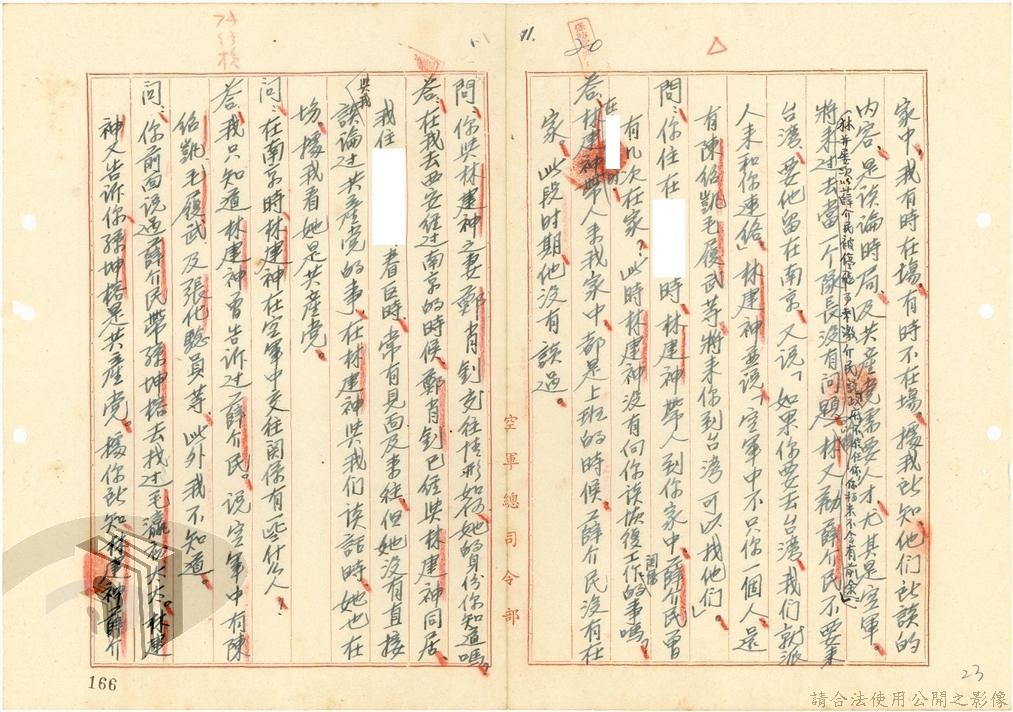 家中，我有時在場，有時不在場，據我所知，他們所談的
內容，是談論時局，及共產党需要人才，尤其是空軍。
將來过去當一个隊長沒有問題，林又勸薛介民不要來
台湾，要他留在南京，又说，如果你要去台湾，我们就派
人來和你連絡，林建神並说，「空軍中不只你一個人，还
有陳紹凱毛履武等將來你到台湾可以找他们」。
問：你住在　　時，林建神帶人到你家中，薛介民曾
有几次在家？此時林建神沒有向你谈恢復工作関係的事嗎？
答：林建神帶人來我家中都是上班的時候，薛介民沒有在
家。此段时期他沒有談过。
問：你與林建神之妻鄭肖釗交往情形如何她的身份你知道嗎？
答：在我去西安经过南京的時候，鄭肖釗已经與林建神同居，
我住　　眷區時，常有見面及來往，但她沒有直接
與我談论过共產党的事，在林建神與我们谈話時，她也在
場，據我看她是共產党。
問：在南京時林建神在空軍中交往関係有些什么人？
答：我只知道林建神曾告诉过薛介民。说空軍中有陳
绍凱毛履武及張化聡員等，此外我不知道。
問：你前面说过薛介民帶孫坤榕去找过毛瀛初太太。林建
神又告诉你孫坤榕是共產党。據你所知林建神薛介
空軍總司令部
166
23
請合法使用公開之影像